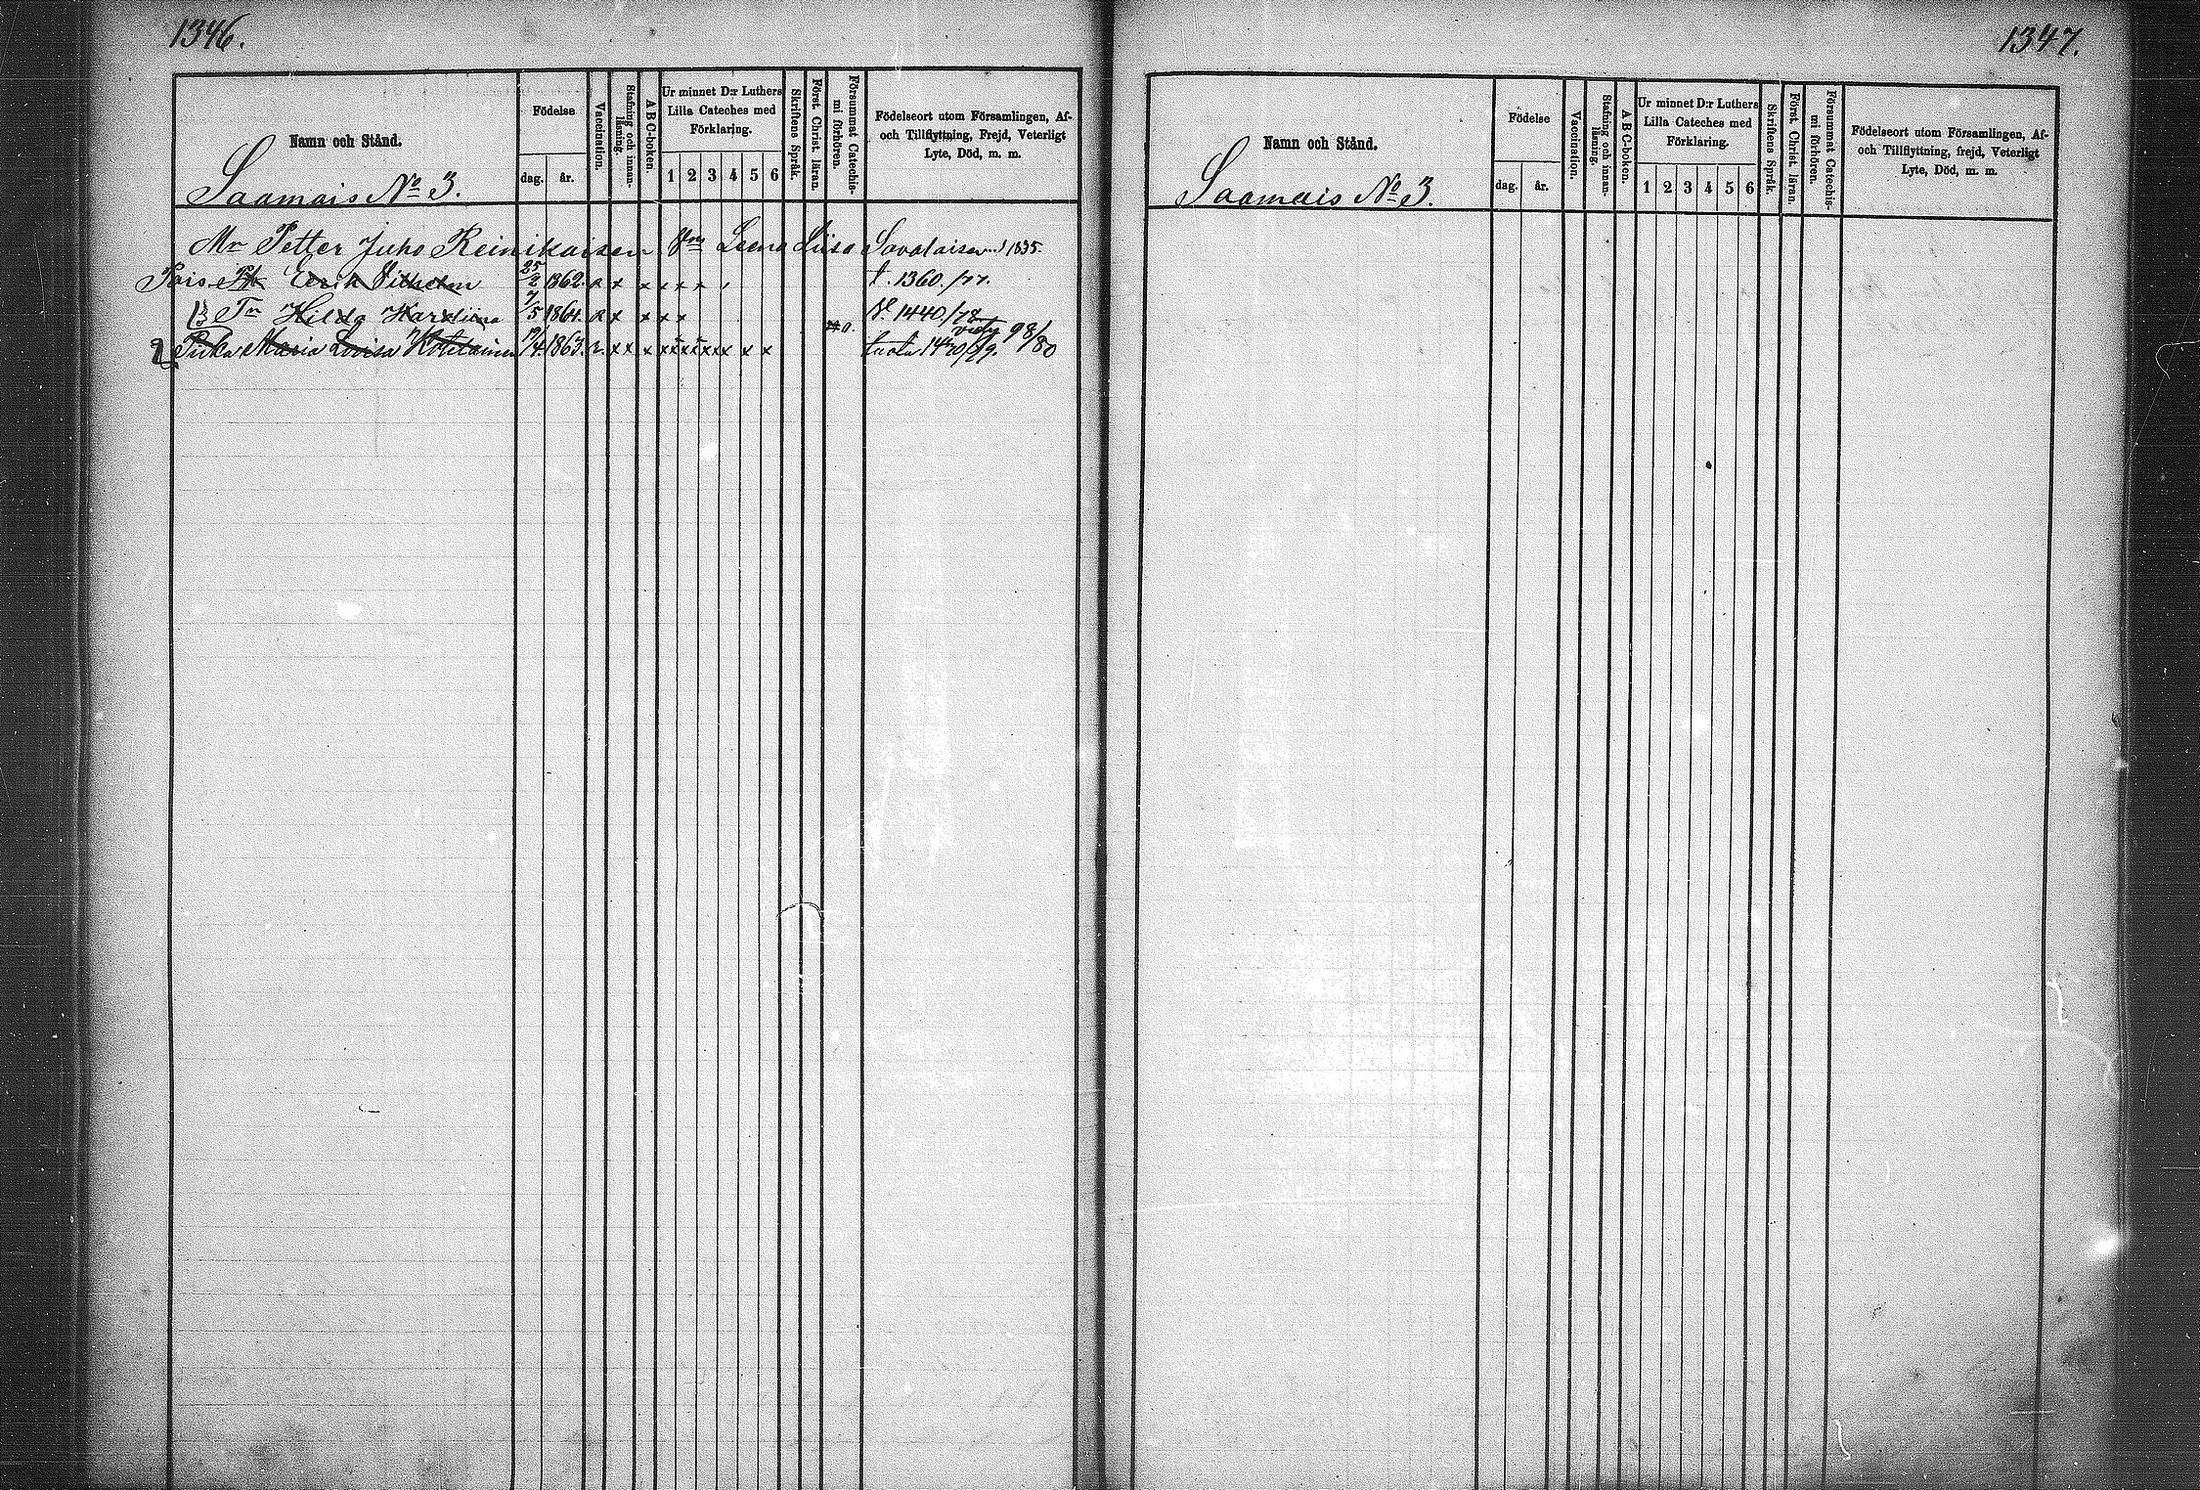 1346.
Namn och Stånd.
Födelse
dag.
år.
Vaccination.
Stafning och innan-
läsning.
A B C-boken.
Ur minnet D:r Luthers
Lilla Cateches med
Förklaring.
1 2 3 4 5 6
Skriftens Språk.
Först. Christ. läran.
Försummat Catechis-
mi förhören.
Födelseort utom Församlingen, Af-
och Tillflyttning, Frejd, Veterligt
Lyte, Död, m. m.
Saamais No 3.
Mn Petter Juho Reinikaisen Leena Liisa Savolaisen 1835.
Pois Erik Vilhelm 25/2 1862. x x x x x t. 1360./77.
Tr Hilda Karoliina 7/5 1864. x x x x 1440./78
Piika Maria Lovisa Kotilainen 1863. x x x x x x x x x x 1420/79. 98/80
1347.
Namn och Stånd.
Födelse
dag.
år.
Vaccination.
Stafning och innan-
läsning.
A B C-boken.
Ur minnet D:r Luthers
Lilla Cateches med
Förklaring.
1 2 3 4 5 6
Skriftens Språk.
Först. Christ. läran.
Försummat Catechis-
mi förhören.
Födelseort utom Församlingen, Af-
och Tillflyttning, frejd, Veterligt
Lyte, Död, m. m.
Saamais No 3.